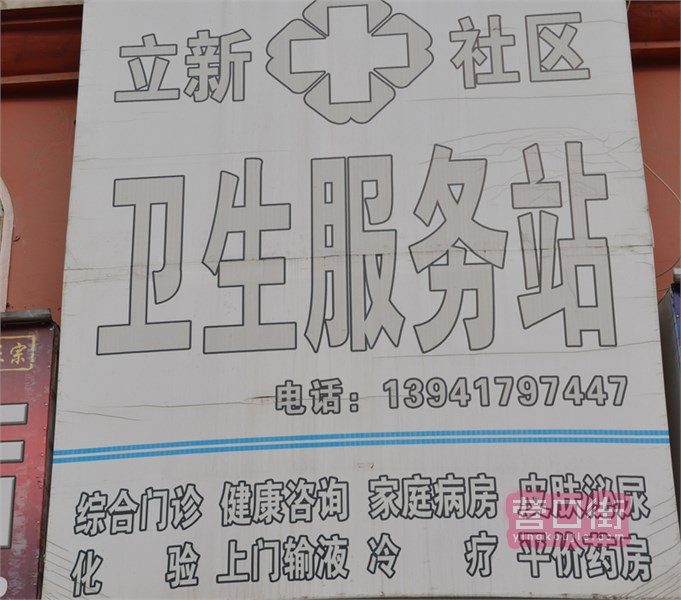 立新 社区
卫生服务站
电话：13941797447
综合门诊 健康咨询 家庭病房 皮肤泌尿
化 验 上门输液 冷 疗 平价药房
宗
营口街